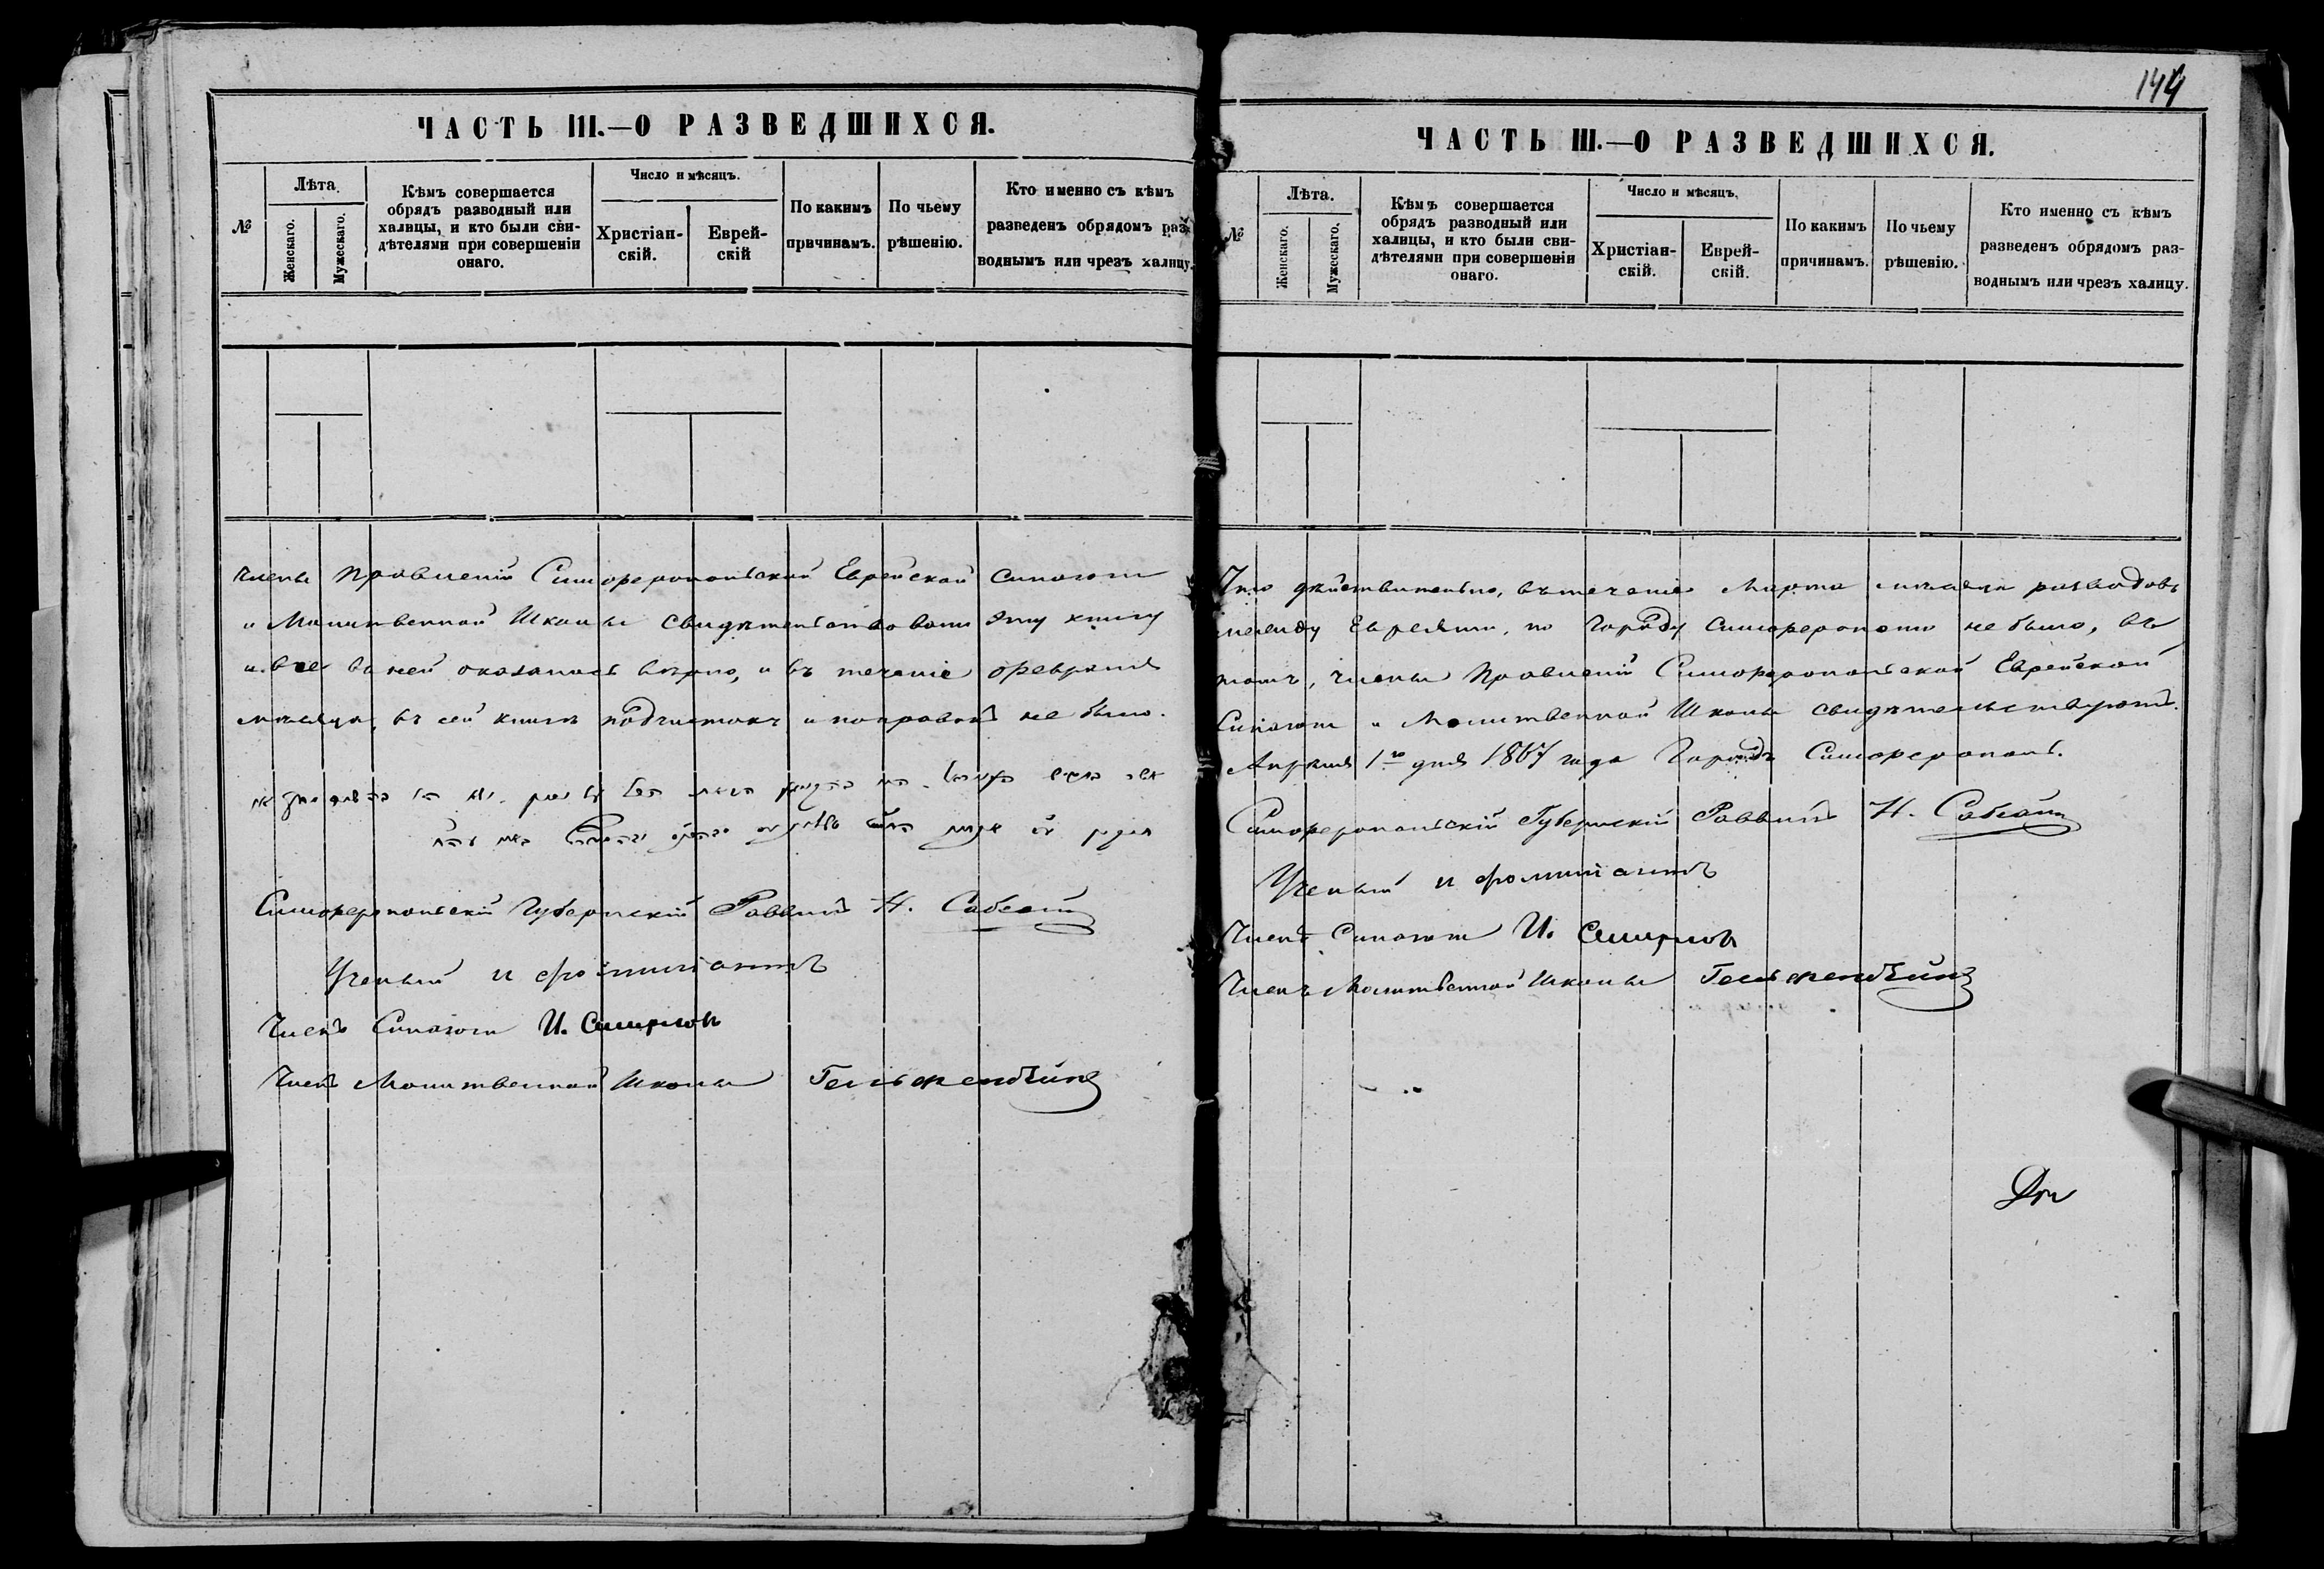 ЧАСТЬ III.—О РАЗВЕДШИХСЯ.
№
Лѣта.
Женскаго.
Мужескаго.
Кѣмъ совершается
обрядъ разводный или
халицы, и кто были сви-
дѣтелями при совершеніи
онаго.
Число и мѣсяцъ.
Христіан-
скій.
Еврей-
скій
По какимъ
причинамъ.
По чьему
рѣшенію.
Кто именно съ кѣмъ
разведенъ обрядомъ раз-
воднымъ или чрезъ халицу.
Члены Правленій Симферопольской Еврейской Синагоги
и Молитвенной Школы свидѣтельствовали эту книгу
и все въ ней оказалось вѣрно, и въ теченіе Февраля
мѣсяца, въ сей книгѣ подчистокъ и поправокъ не было.
Симферопольскій Губернскій Раввинъ Н.
Ученый
Членъ Синагоги И. Смирнов
Членъ Молитвенной Школы Гельфендбейнъ
144
ЧАСТЬ III.—О РАЗВЕДШИХСЯ.
№
Лѣта.
Женскаго.
Мужескаго.
Кѣмъ совершается
обрядъ разводный или
халицы, и кто были сви-
дѣтелями при совершеніи
онаго.
Число и мѣсяцъ.
Христіан-
скій.
Еврей-
скій.
По какимъ
причинамъ.
По чьему
рѣшенію.
Кто именно съ кѣмъ
разведенъ обрядомъ раз-
воднымъ или чрезъ халицу.
Что дѣйствительно, въ теченіе Марта мѣсяца разводовъ
между Евреями, по Городу Симферополю не было, въ
томъ, члены Правленій Симферопольской Еврейской
Синагоги и Молитвенной Школы свидѣтельствуютъ.
Апрѣля 1го дня 1867 года Городъ Симферополь.
Симферопольскій Губернскій Раввинъ Н.
Ученый
Членъ Синагоги И. Смирнов
Членъ Молитвенной Школы Гельфендбейнъ